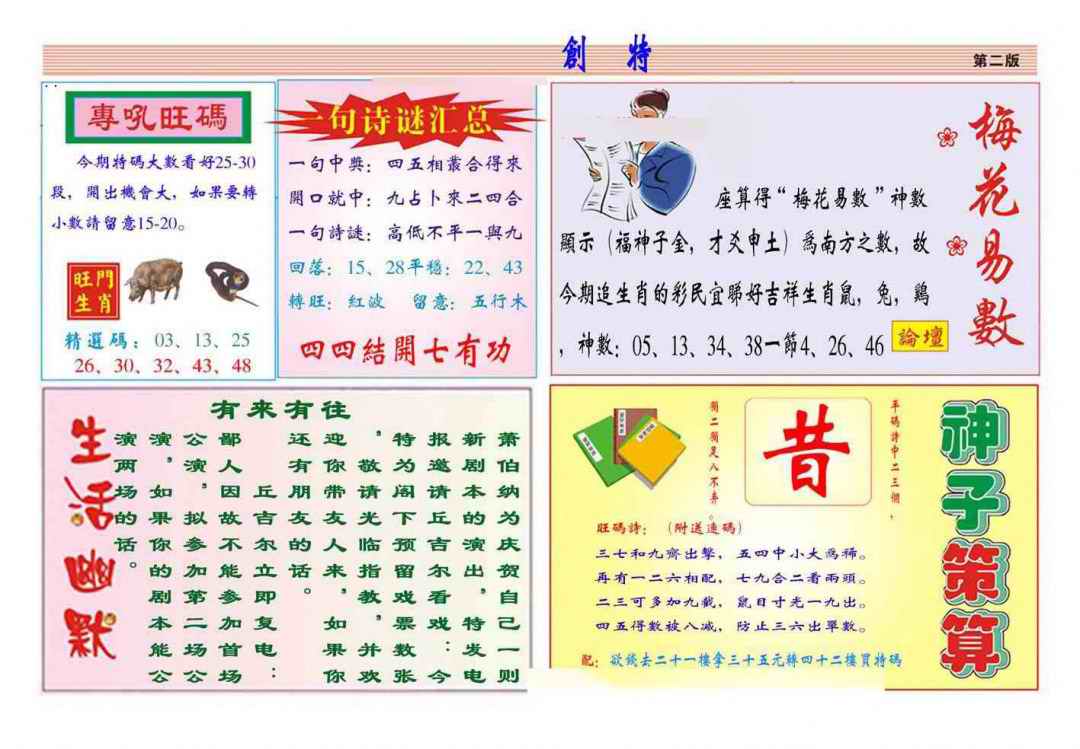 創 特
第二版
專吼旺碼
今期特碼大數看好25-30
段，開出機會大，如果要轉
小數請留意15-20。
旺門
生肖
精選碼：03、13、25
26、30、32、43、48
一句诗谜汇总
一句中獎：四五相叢合得來
開口就中：九占卜來二四合
一句詩謎：高低不平一與九
回落：15、28平穩：22、43
轉旺：紅波 留意：五行木
四四結開七有功
梅花易數
座算得“梅花易數”神數
顯示（福神子金，才爻申土）爲南方之數，故
今期追生肖的彩民宜睇好吉祥生肖鼠，兔，鷄
，神數：05、13、34、38一節4、26、46
論壇
生活幽默
有来有往
萧伯纳为庆贺自己一则
新剧本的演出，特发电
报邀请丘吉尔看戏：今
特为阁下预留戏票数张
，敬请光临指教，并欢
迎你带友人来，如果你
还有朋友的话。
丘吉尔立即复电：
鄙人因故不能参加首场
公演，拟参加第二场公
演，如果你的剧本能公
演两场的话。
神子策算
平碼詩中二三個，
昔
二須是八不弃。
旺碼詩：（附送連碼）
三七和九齊出擊，五四中小大爲稀。
再有一二六相配，七九合二看兩頭。
二三可多加九載，鼠目寸光一九出。
四五得數被八减，防止三六出單數。
配：欲錢去二十一樓拿三十五元轉四十二樓買特碼